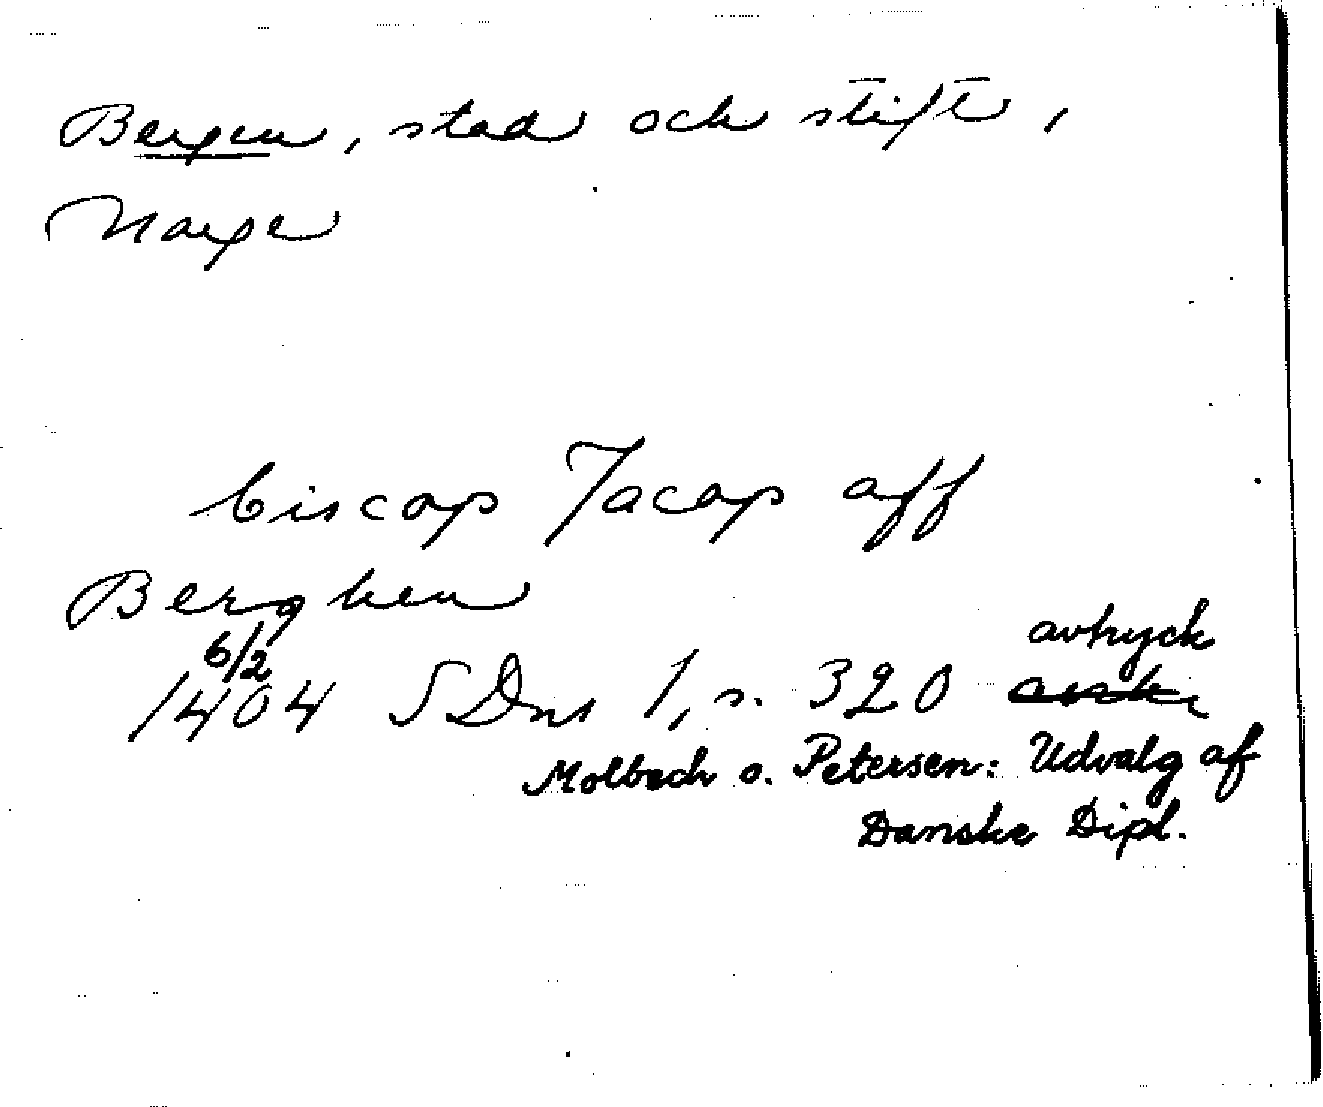 Bergen, stad och stift,
Norge
biscop Jacop aff
Berghen
6/2
1404 SDns 1, s. 320 avtryck
Molbech o. Petersen: Udvalg af
Danske Dipl.